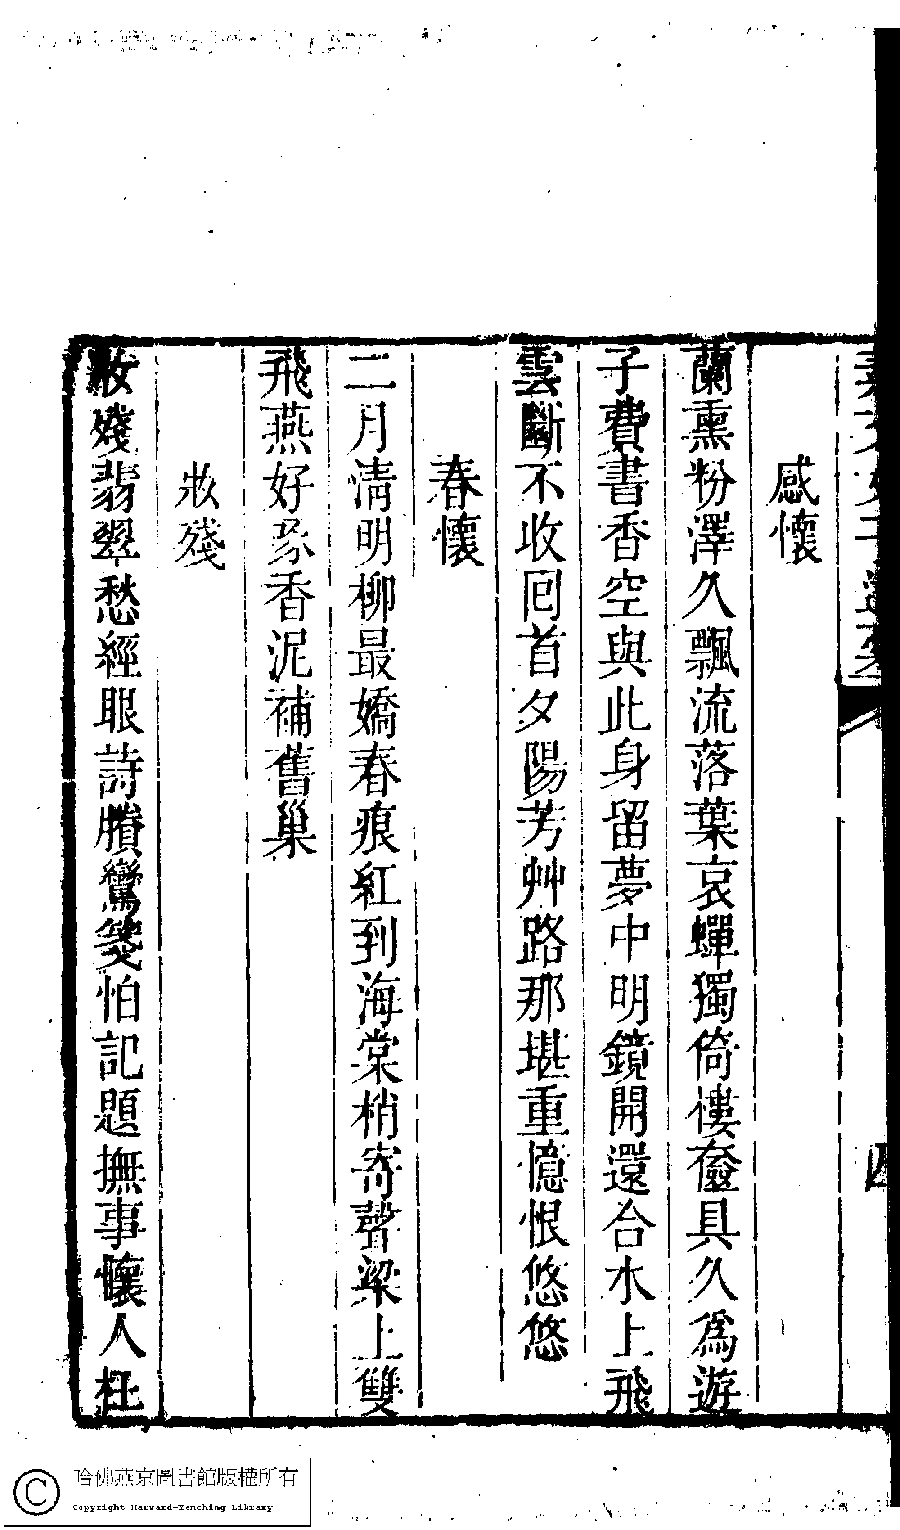 素文女子遺稾
四
感懷
蘭熏粉澤久飄流落葉哀蟬獨倚樓奩具久爲遊
子費書香空與此身留夢中明鏡開還合水上飛
雲斷不收囘首夕陽芳艸路那堪重憶恨悠悠
春懷
二月清明柳最嬌春痕紅到海棠梢寄聲梁上雙
飛燕好啄香泥補舊巢
妝殘
妝殘翡翠愁經眼詩賸鸞箋怕記題撫事懷人枉
哈佛燕京圖書館版權所有
Copyright Harvard-Yenching Library